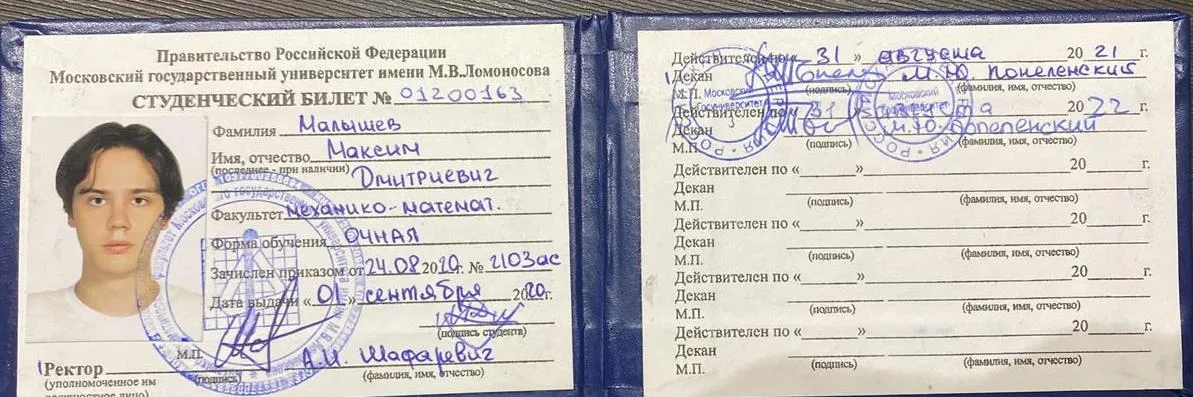 Правительство Российской Федерации
Московский государственный университет имени М.В.Ломоносова
СТУДЕНЧЕСКИЙ БИЛЕТ № 01200163
Фамилия Малышев
Имя, отчество Максим
(последнее - при наличии) Дмитриевич
Факультет механико-математ.
Форма обучения ОЧНАЯ
Зачислен приказом от 24.08 2020г. № 2103ас
Дата выдачи «01» сентября 2020г.
(подпись студента)
М.П.
Ректор А.И. Шафаревич
(уполномоченное им (подпись) (фамилия, имя, отчество)
должностное лицо)
Действителен по «31» августа 2021 г.
Декан М.Ю. Попеленский
М.П. (подпись) (фамилия, имя, отчество)
Московский
Госуниверситет
Действителен по «31» августа 2022 г.
Декан М.Ю. Попеленский
М.П. (подпись) (фамилия, имя, отчество)
Московский
Госуниверситет
Действителен по « » 20 г.
Декан
М.П. (подпись) (фамилия, имя, отчество)
Действителен по « » 20 г.
Декан
М.П. (подпись) (фамилия, имя, отчество)
Действителен по « » 20 г.
Декан
М.П. (подпись) (фамилия, имя, отчество)
Действителен по « » 20 г.
Декан
М.П. (подпись) (фамилия, имя, отчество)